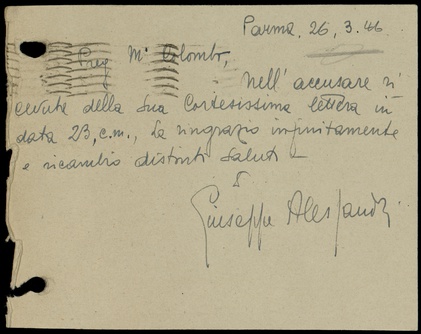 Parma, 26, 3. 46
Preg. M° Colombo,
Nell' accusare ri
cevuta della Sua Cortesissima lettera in
data 23, c.m., La ringrazio infinitamente
e ricambio distinti saluti –
Giuseppe Alessandri